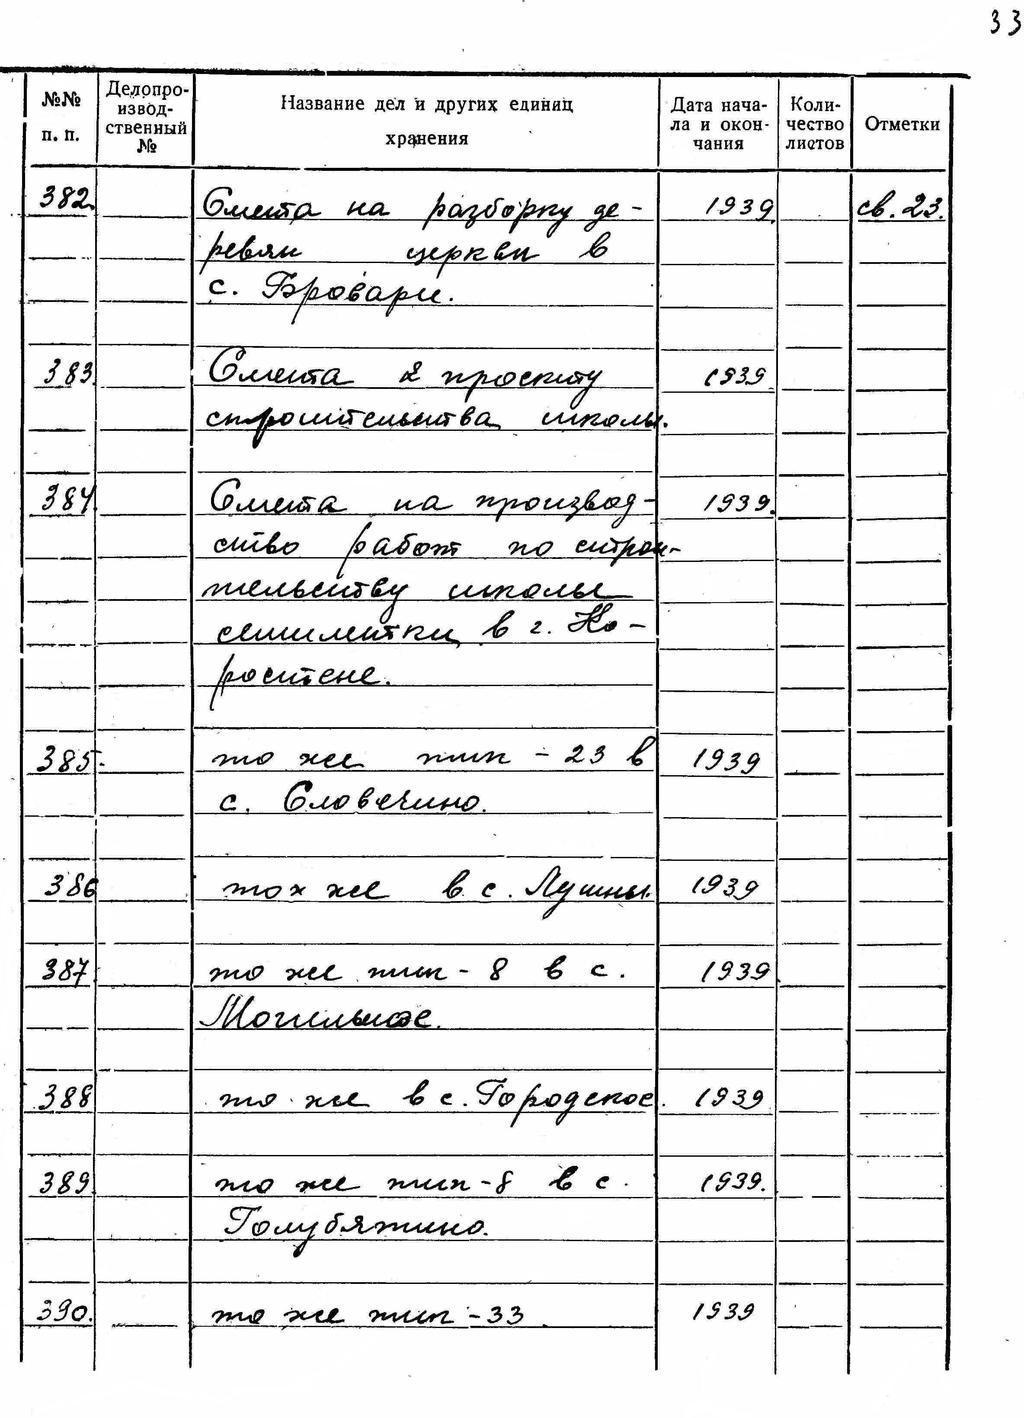 33
№№ п. п. Делопроизвод-ственный № Название дел и других единиц хранения Дата нача-ла и окон-чания Коли-чество листов Отметки
382. Смета на разборку де- 1939 св. 23.
ревян церкви в
с. Бровары.
383 Смета к проекту 1939
строительства школы.
384 Смета на производ- 1939.
ство работ по строи-
тельству школы
семилетки в г. Ко-
ростене.
385. то же тип - 23 в 1939
с. Словечино.
386 то же в с. Лушны. 1939
387 то же тип - 8 в с. 1939
Могильное.
388 то же в с. Городское. 1939
389 то же тип - 8 в с. 1939.
Голубятино.
390. то же тип - 33 1939